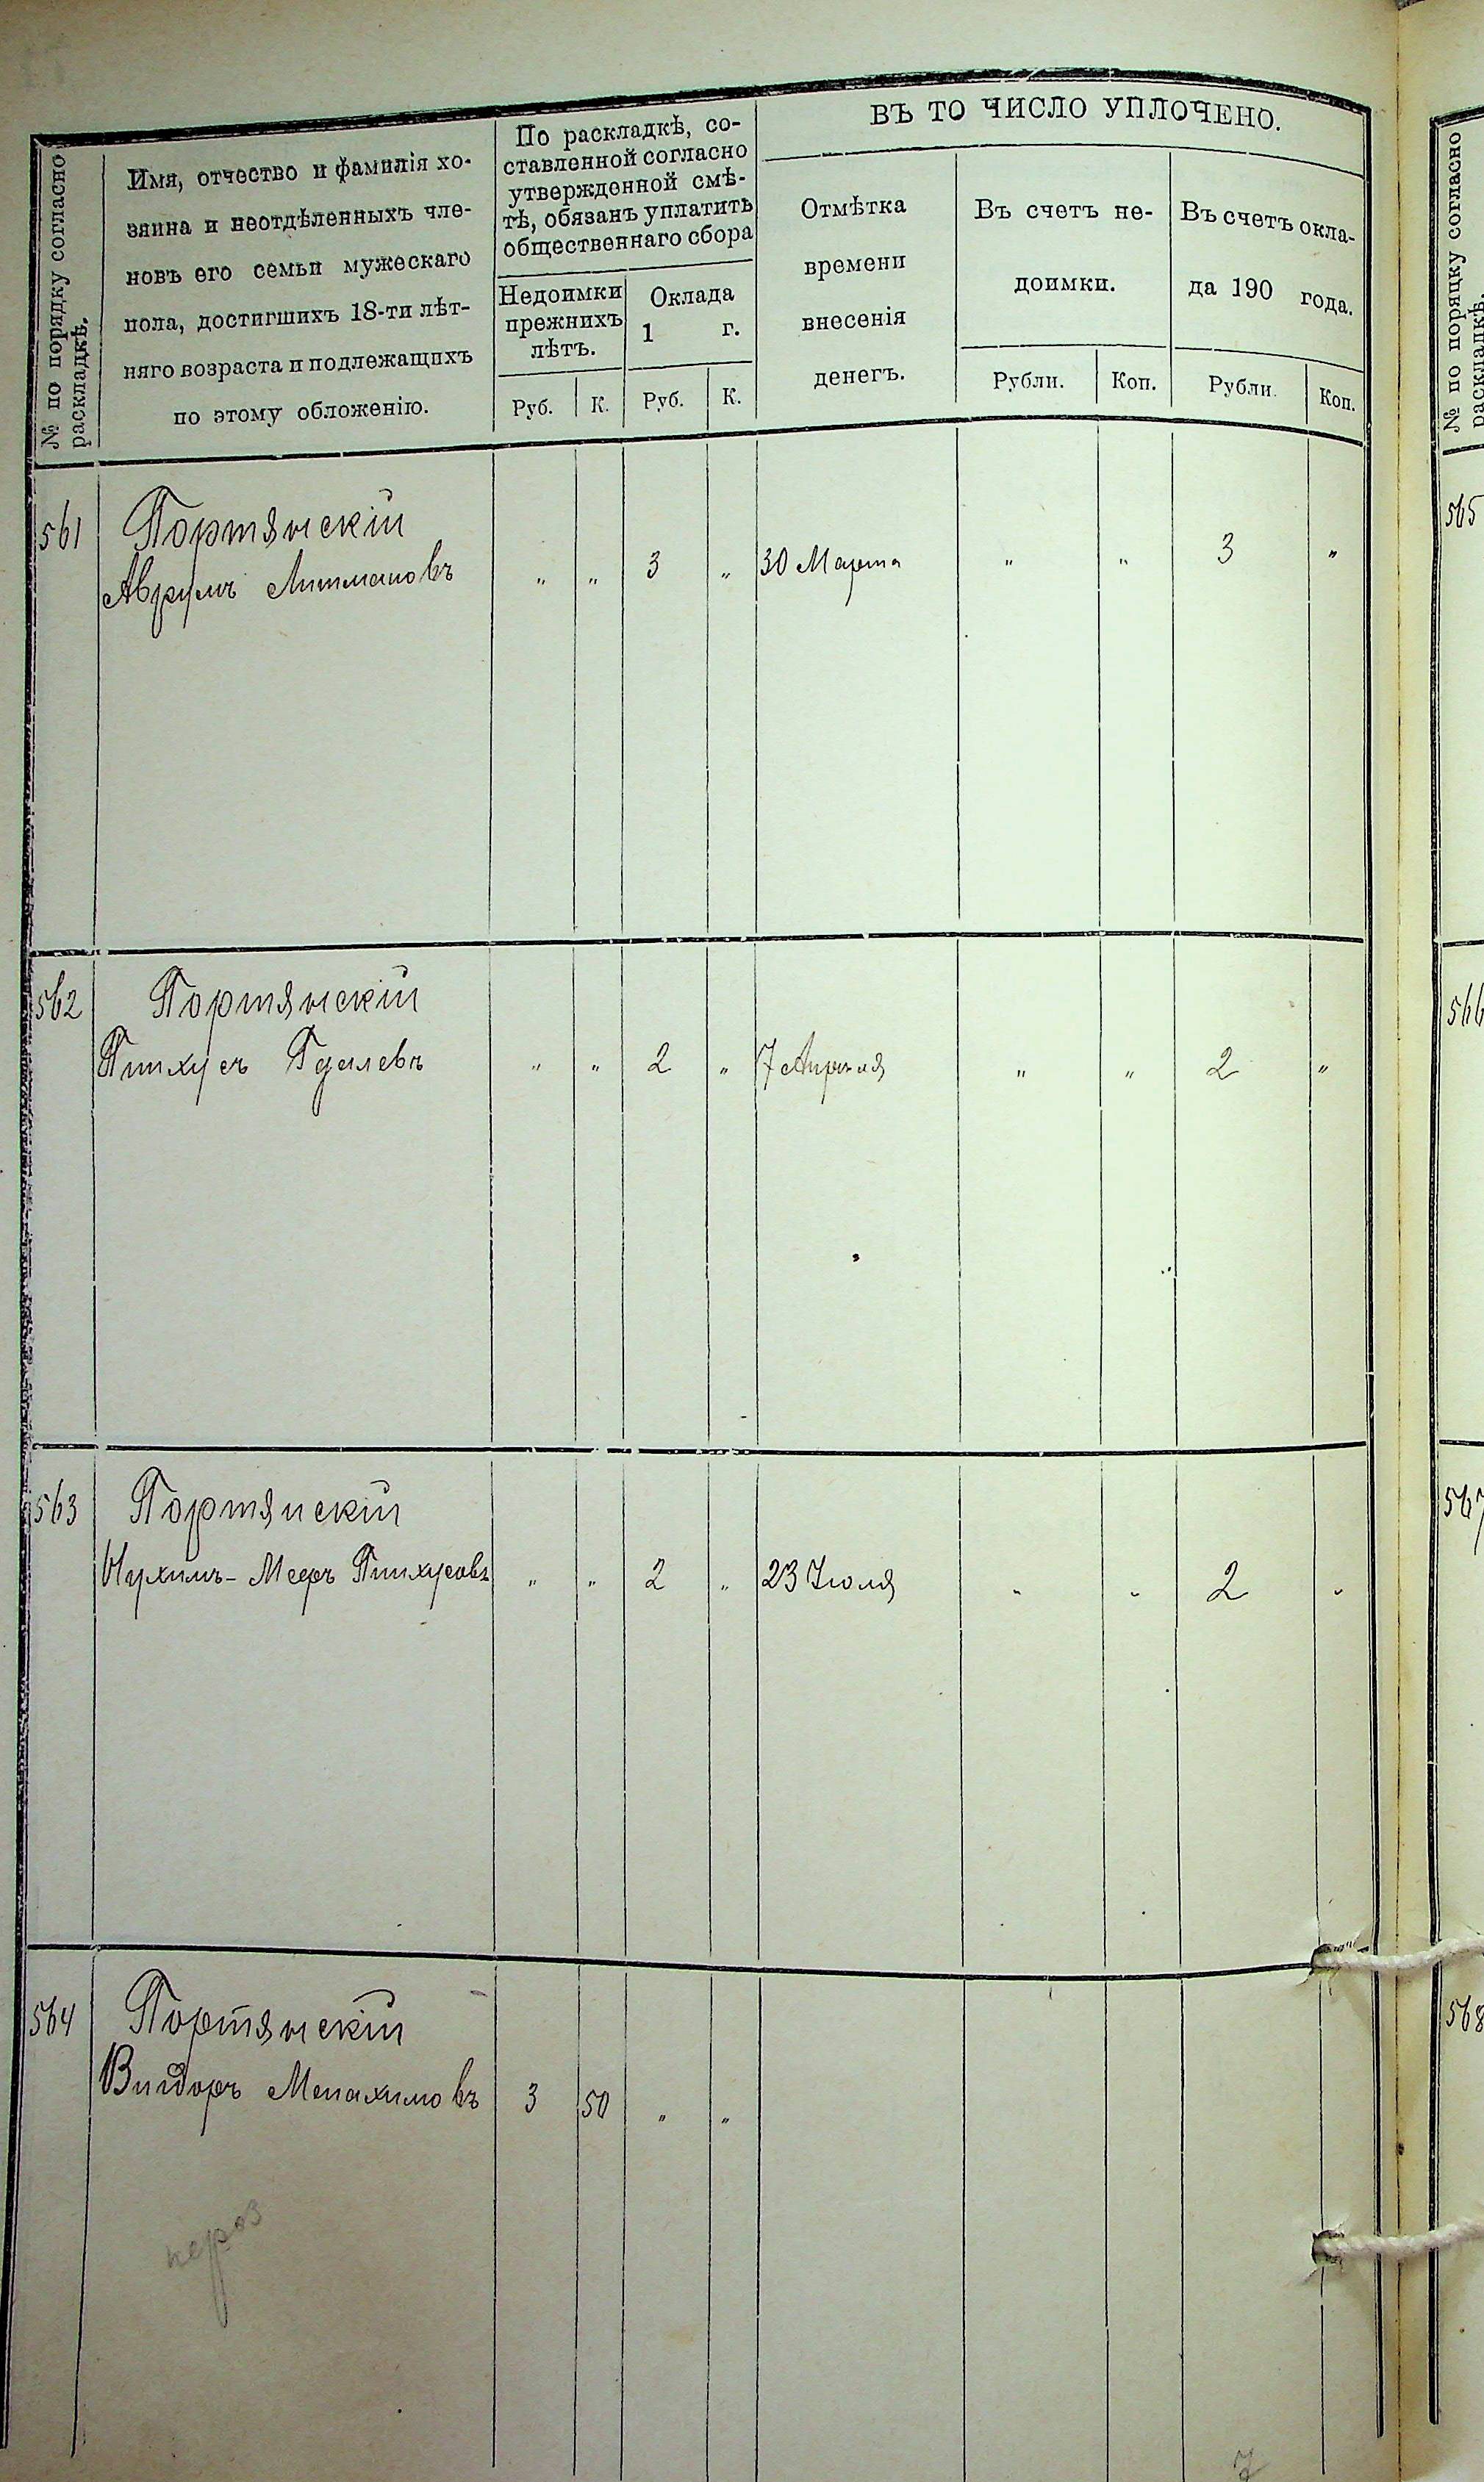 № по порядку согласно
раскладкѣ.
Имя, отчество и фамилія хо-
зяина и неотдѣленныхъ чле-
новъ его семьи мужескаго
пола, достигшихъ 18-ти лѣт-
няго возраста и подлежащихъ
по этому обложенію.
По раскладкѣ, со-
ставленной согласно
утвержденной смѣ-
тѣ, обязанъ уплатить
общественнаго сбора
Недоимки
прежнихъ
лѣтъ.
Руб. К.
Оклада
1 г.
Руб. К.
ВЪ ТО ЧИСЛО УПЛОЧЕНО.
Отмѣтка
времени
внесенія
денегъ.
Въ счетъ не-
доимки.
Рубли. Коп.
Въ счетъ окла-
да 190 года.
Рубли. Коп.
561 Портянскій
Аврумъ Литмановъ " " 3 " 30 Марта " " 3 "
562 Портянскій
Пинхусъ Гдалевъ " " 2 " 7 Апрѣля " " 2 "
563 Портянскій
Нухимъ-Мееръ Пинхусовъ " " 2 " 23 Іюля " " 2 "
564 Портянскій
Вигдоръ Менахимовъ 3 50 " "
7
№ по порядку согласно
раскладкѣ.
565
566
567
568